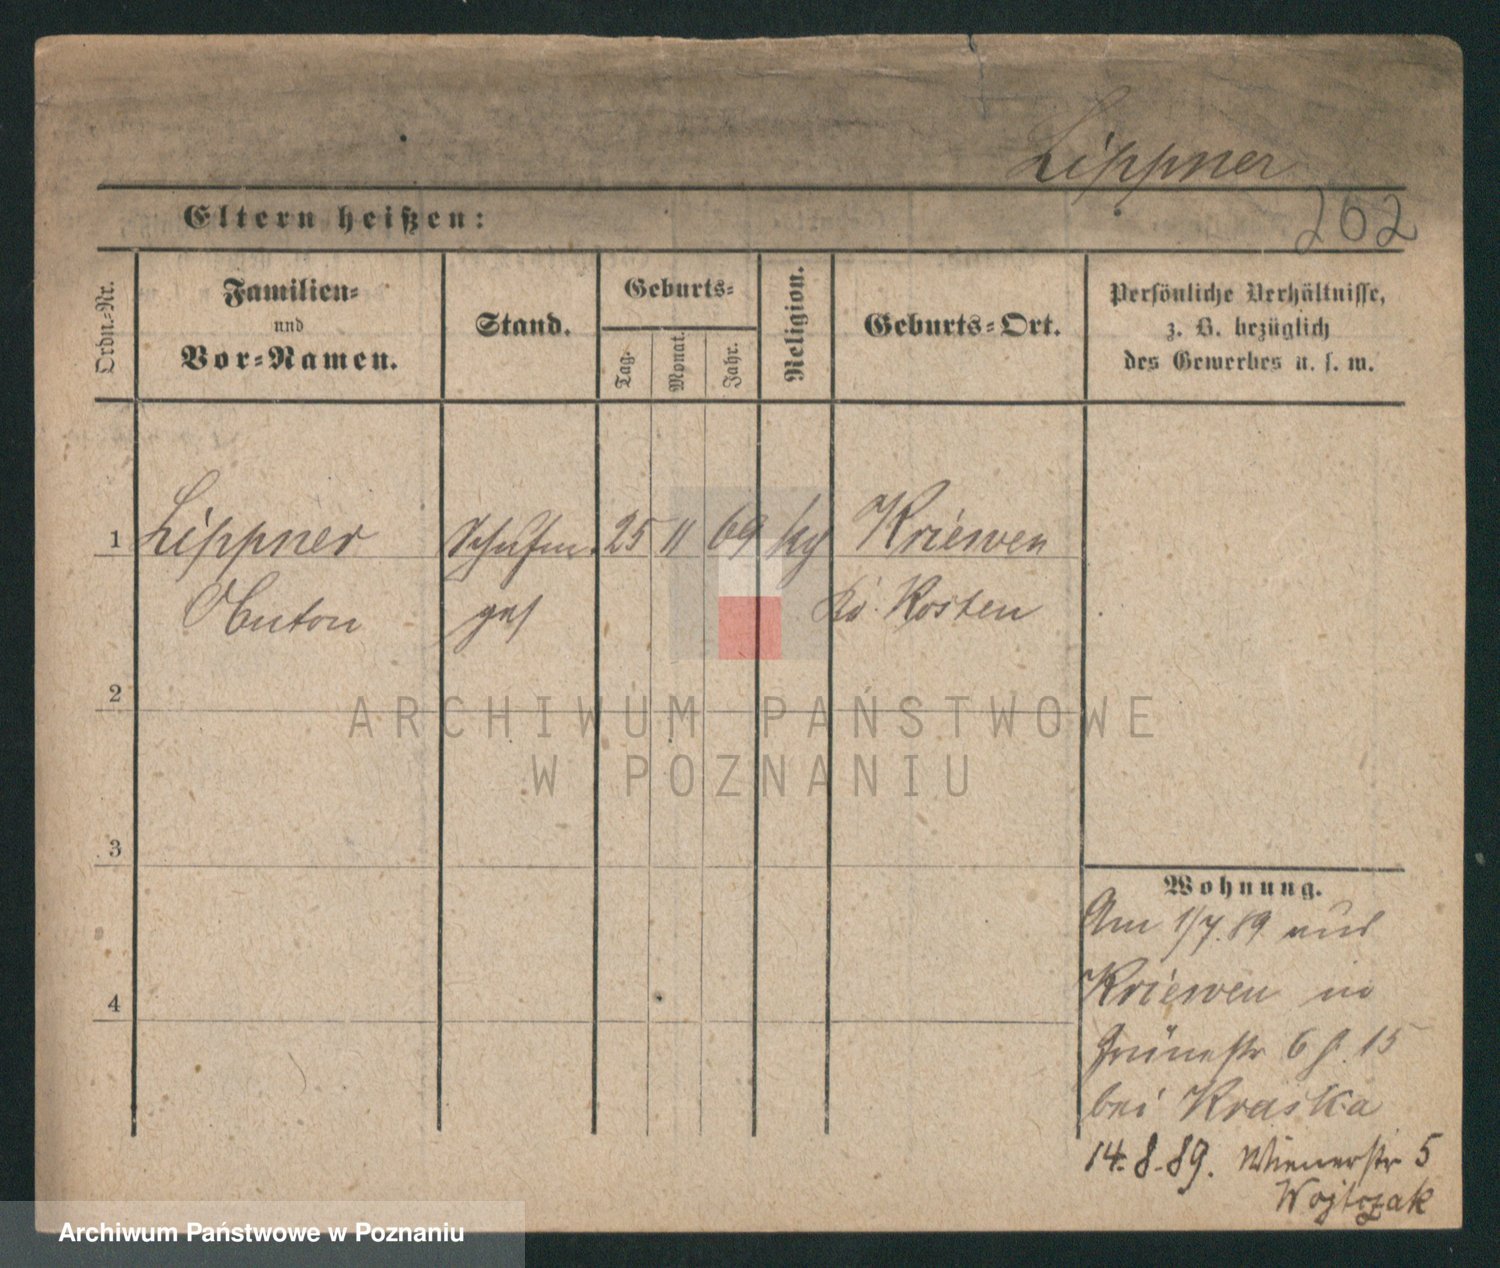 Lippner
Eltern heißen:
262
Ordn.-Nr.
Familien-
und
Vor-Namen.
Stand.
Geburts-
Tag.
Monat.
Jahr.
Religion.
Geburts-Ort.
Persönliche Verhältnisse,
z. B. bezüglich
des Gewerbes u. s. w.
1 Lippner 25 11 69 Kriewen
Anton Kr. Kosten
2
ARCHIWUM PAŃSTWOWE
W POZNANIU
3
Wohnung.
Am 1/7.89 aus
4
Kriewen in
Grünestr 6 15
bei Kraska
14.8.89. Wienerstr 5
Wojtczak
Archiwum Państwowe w Poznaniu